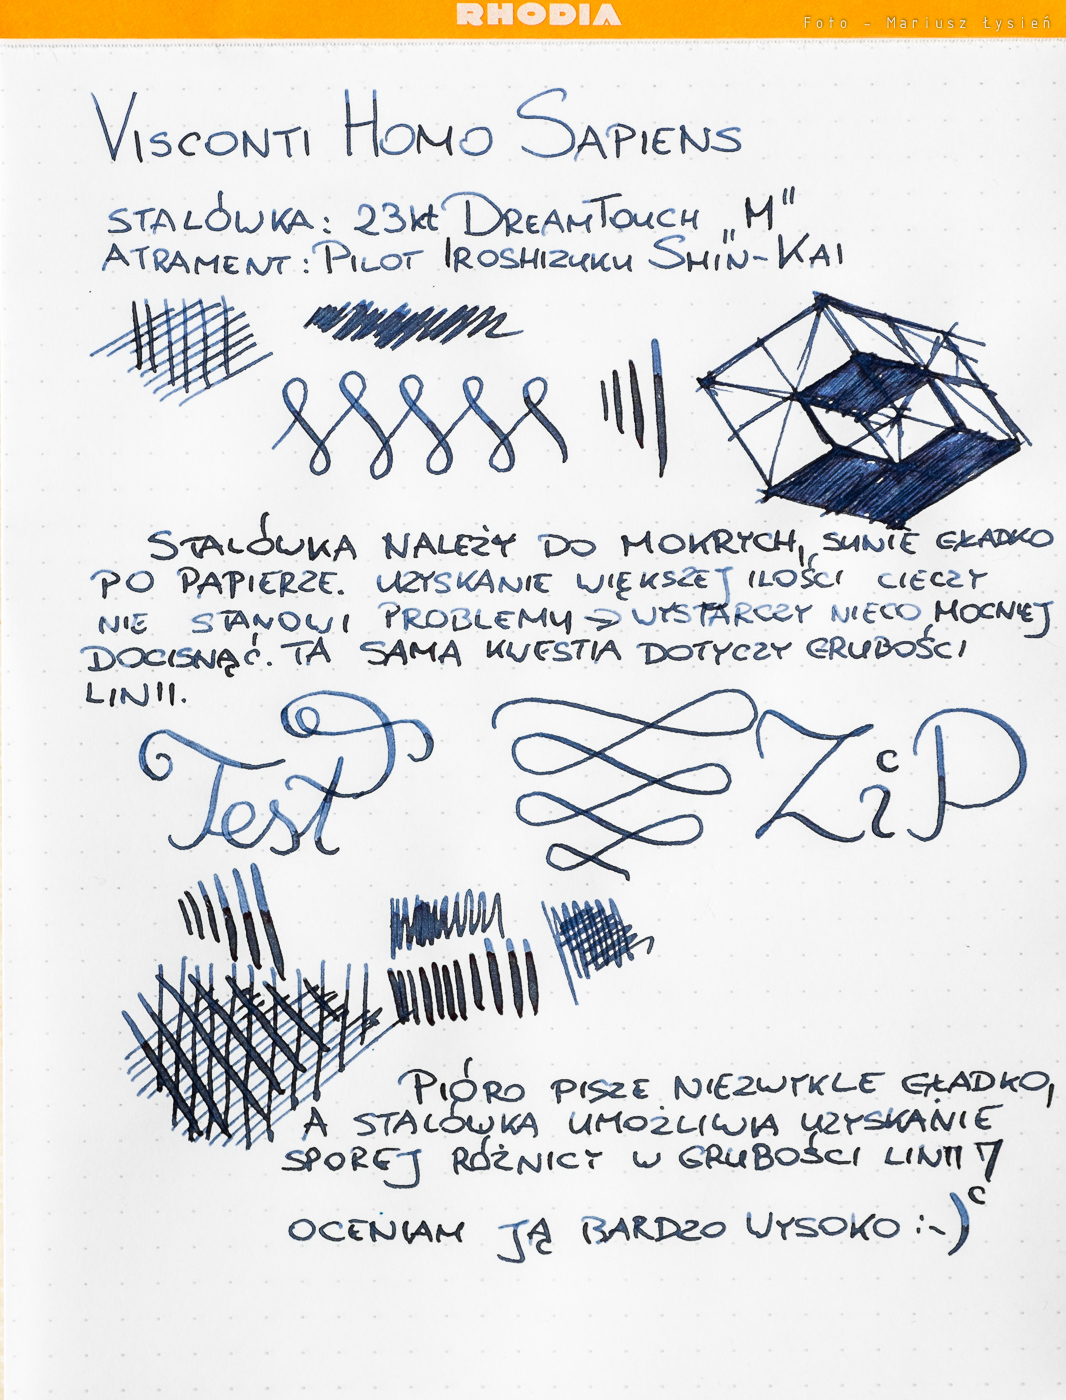 RHODIA
Foto - Mariusz Łysień
VISCONTI HOMO SAPIENS
STALÓWKA: 23kt DREAMTOUCH „M"
ATRAMENT: PILOT IROSHIZUKU „SHIN-KAI
STALÓWKA NALEŻY DO MOKRYCH, SUNIE GŁADKO
PO PAPIERZE. UZYSKANIE WIĘKSZEJ ILOŚCI CIECZY
NIE STANOWI PROBLEMU => WYSTARCZY NIECO MOCNIEJ
DOCISNĄĆ. TA SAMA KWESTIA DOTYCZY GRUBOŚCI
LINII.
Test ZiP
PIÓRO PISZE NIEZWYKLE GŁADKO,
A STALÓWKA UMOŻLIWIA UZYSKANIE
SPOREJ RÓŻNICY W GRUBOŚCI LINII
OCENIAM JĄ BARDZO WYSOKO :-)